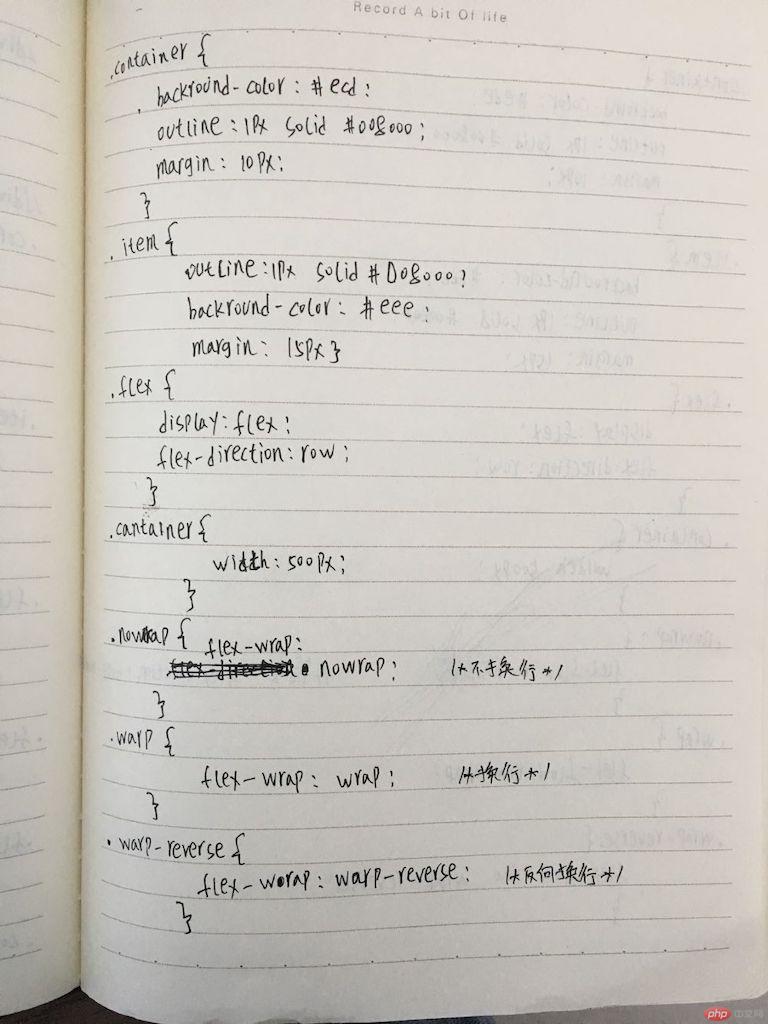 Record A bit Of life
.container {
backround-color : #ecd :
outline : 1Px solid #008000 ;
margin : 10Px ;
}
. item {
outline : 1Px solid #008000 ;
backround-color : #eee ;
margin : 15Px }
.flex {
display : flex ;
flex-direction : row ;
}
.cantainer {
width : 500Px ;
}
.nowrap {
flex-wrap :
flex-direction : nowrap ; /* 不换行 */
}
.warp {
flex-wrap : wrap ; /* 换行 */
}
. warp-reverse {
flex-wrap : warp-reverse : /* 反向换行 */
}
php 中文网